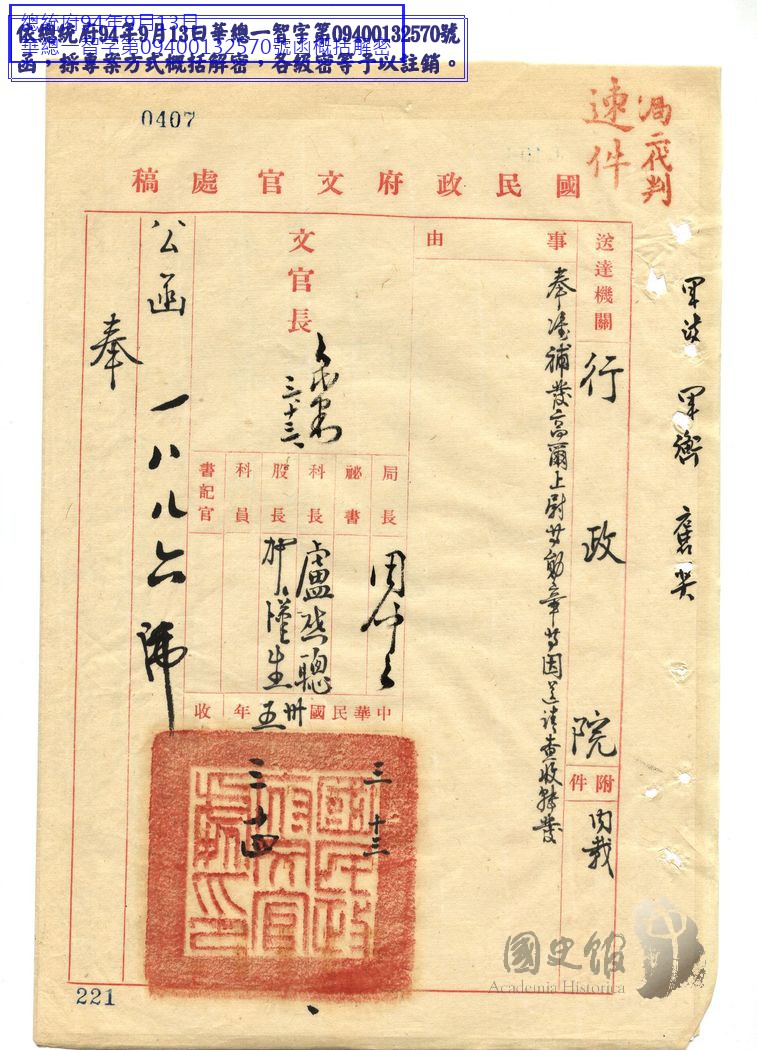 總統府94年9月13日
華總一智字第09400132570號函概括解密
依總統府94年9月13日華總一智字第09400132570號
函，採專案方式概括解密，各級密等予以註銷。
0407
速件
國民政府文官處稿
送達機關
行政院
附件
內載
事由
奉准補發高爾上尉
勳章等因送請查收轉發
文官長
三、十三、
局長
秘書
科長
股長
科員
書記官
盧杰聰
中華民國卅五年
收
三 十三
三 十四
公函 一八八六號
奉
國民政府文官處印
221
國史館
Academia Historica